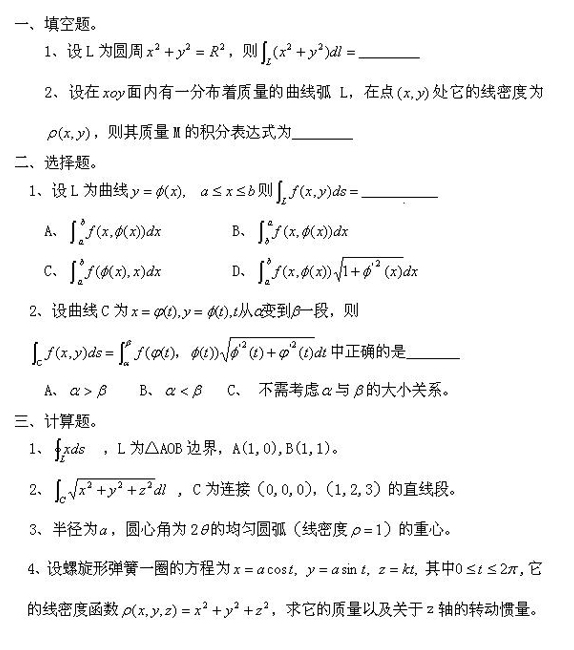 一、填空题。
1、设L为圆周 $x^2+y^2=R^2$，则 $\int_L (x^2+y^2)dl=$________
2、设在xoy面内有一分布着质量的曲线弧 L，在点 $(x,y)$ 处它的线密度为
$\rho(x,y)$，则其质量M的积分表达式为________
二、选择题。
1、设L为曲线 $y=\phi(x),\ a\le x\le b$ 则 $\int_L f(x,y)ds=$__________
A、$\int_a^b f(x,\phi(x))dx$ B、$\int_b^a f(x,\phi(x))dx$
C、$\int_a^b f(\phi(x),x)dx$ D、$\int_a^b f(x,\phi(x))\sqrt{1+\phi'^2(x)}dx$
2、设曲线C为 $x=\varphi(t),y=\phi(t),t$从α变到β一段，则
$\int_C f(x,y)ds=\int_\alpha^\beta f(\varphi(t),\phi(t))\sqrt{\phi'^2(t)+\varphi'^2(t)}dt$ 中正确的是_______
A、$\alpha>\beta$ B、$\alpha<\beta$ C、 不需考虑α与β的大小关系。
三、计算题。
1、$\oint_L xds$ ，L为△AOB边界，A(1,0),B(1,1)。
2、$\int_C \sqrt{x^2+y^2+z^2}dl$ ，C为连接(0,0,0),(1,2,3)的直线段。
3、半径为a，圆心角为2θ的均匀圆弧（线密度 $\rho=1$）的重心。
4、设螺旋形弹簧一圈的方程为 $x=a\cos t,\ y=a\sin t,\ z=kt,$ 其中 $0\le t\le 2\pi$,它
的线密度函数 $\rho(x,y,z)=x^2+y^2+z^2$，求它的质量以及关于z轴的转动惯量。